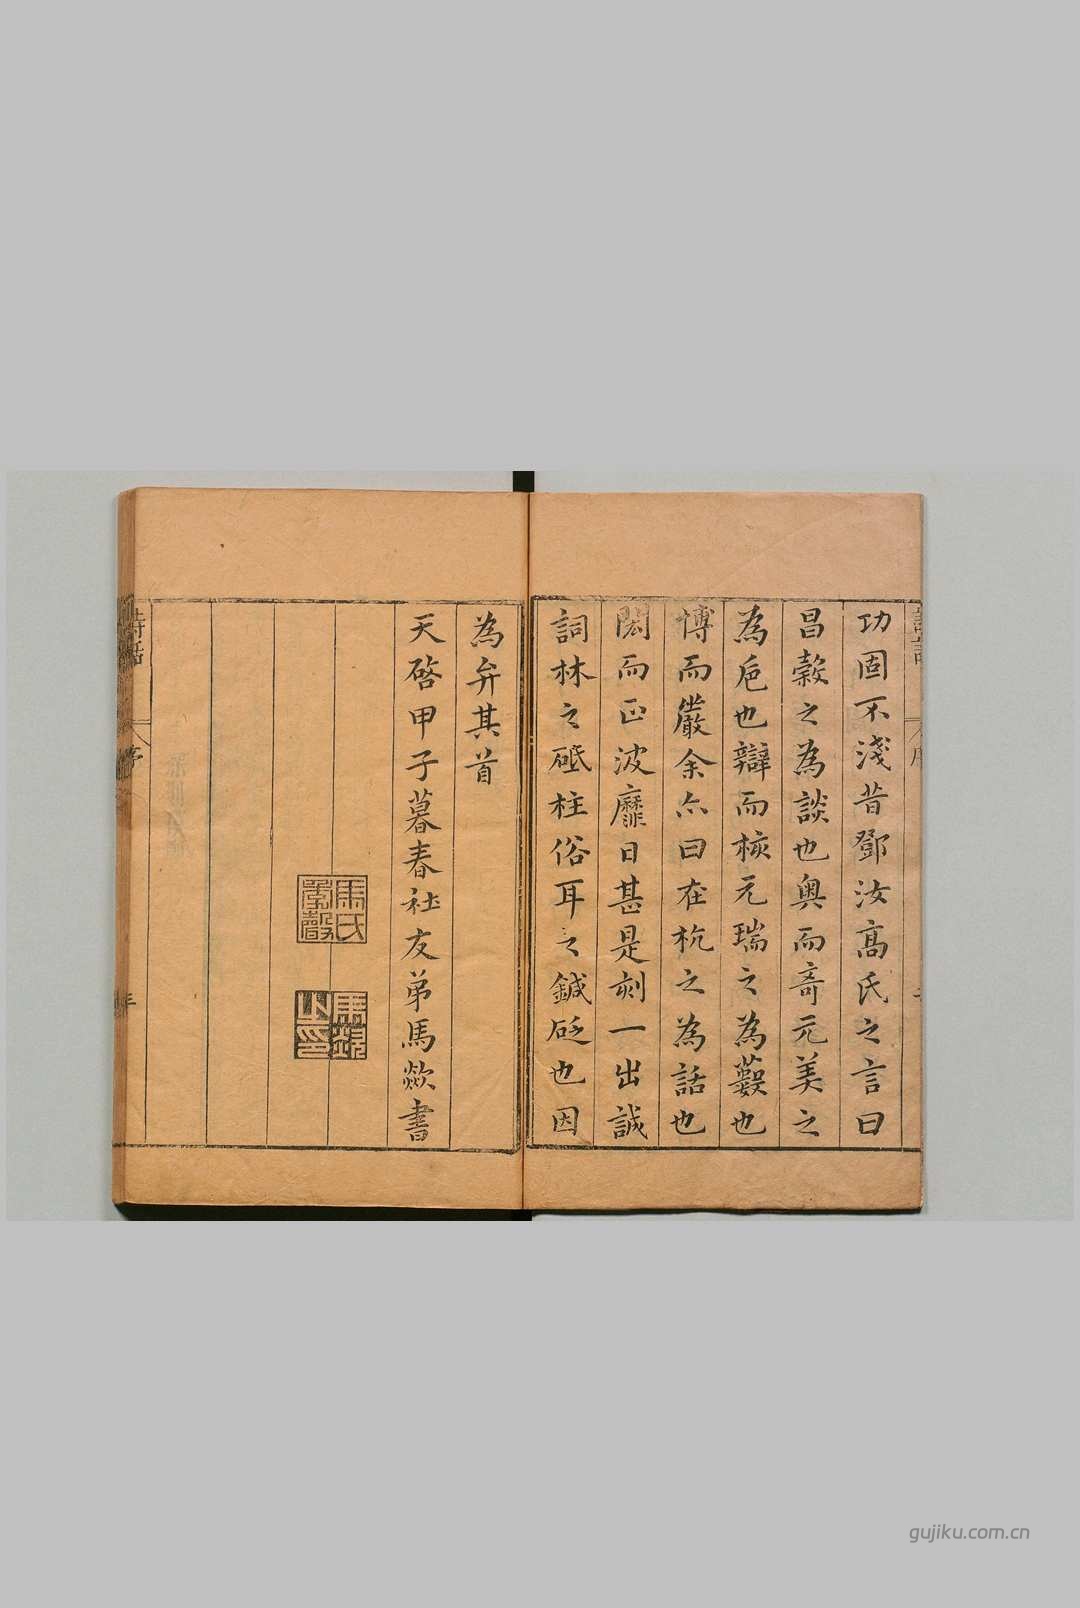 功固不淺昔鄧汝高氏之言曰
昌穀之為談也奧而奇元美之
為巵也辯而核元瑞之為藪也
博而嚴余亦曰在杭之為話也
閎而正波靡日甚是刻一出誠
詞林之砥柱俗耳之鍼砭也因
為弁其首
天啓甲子暮春社友弟馬歘書
馬氏
馬歘之印
詩話
序
gujiku.com.cn